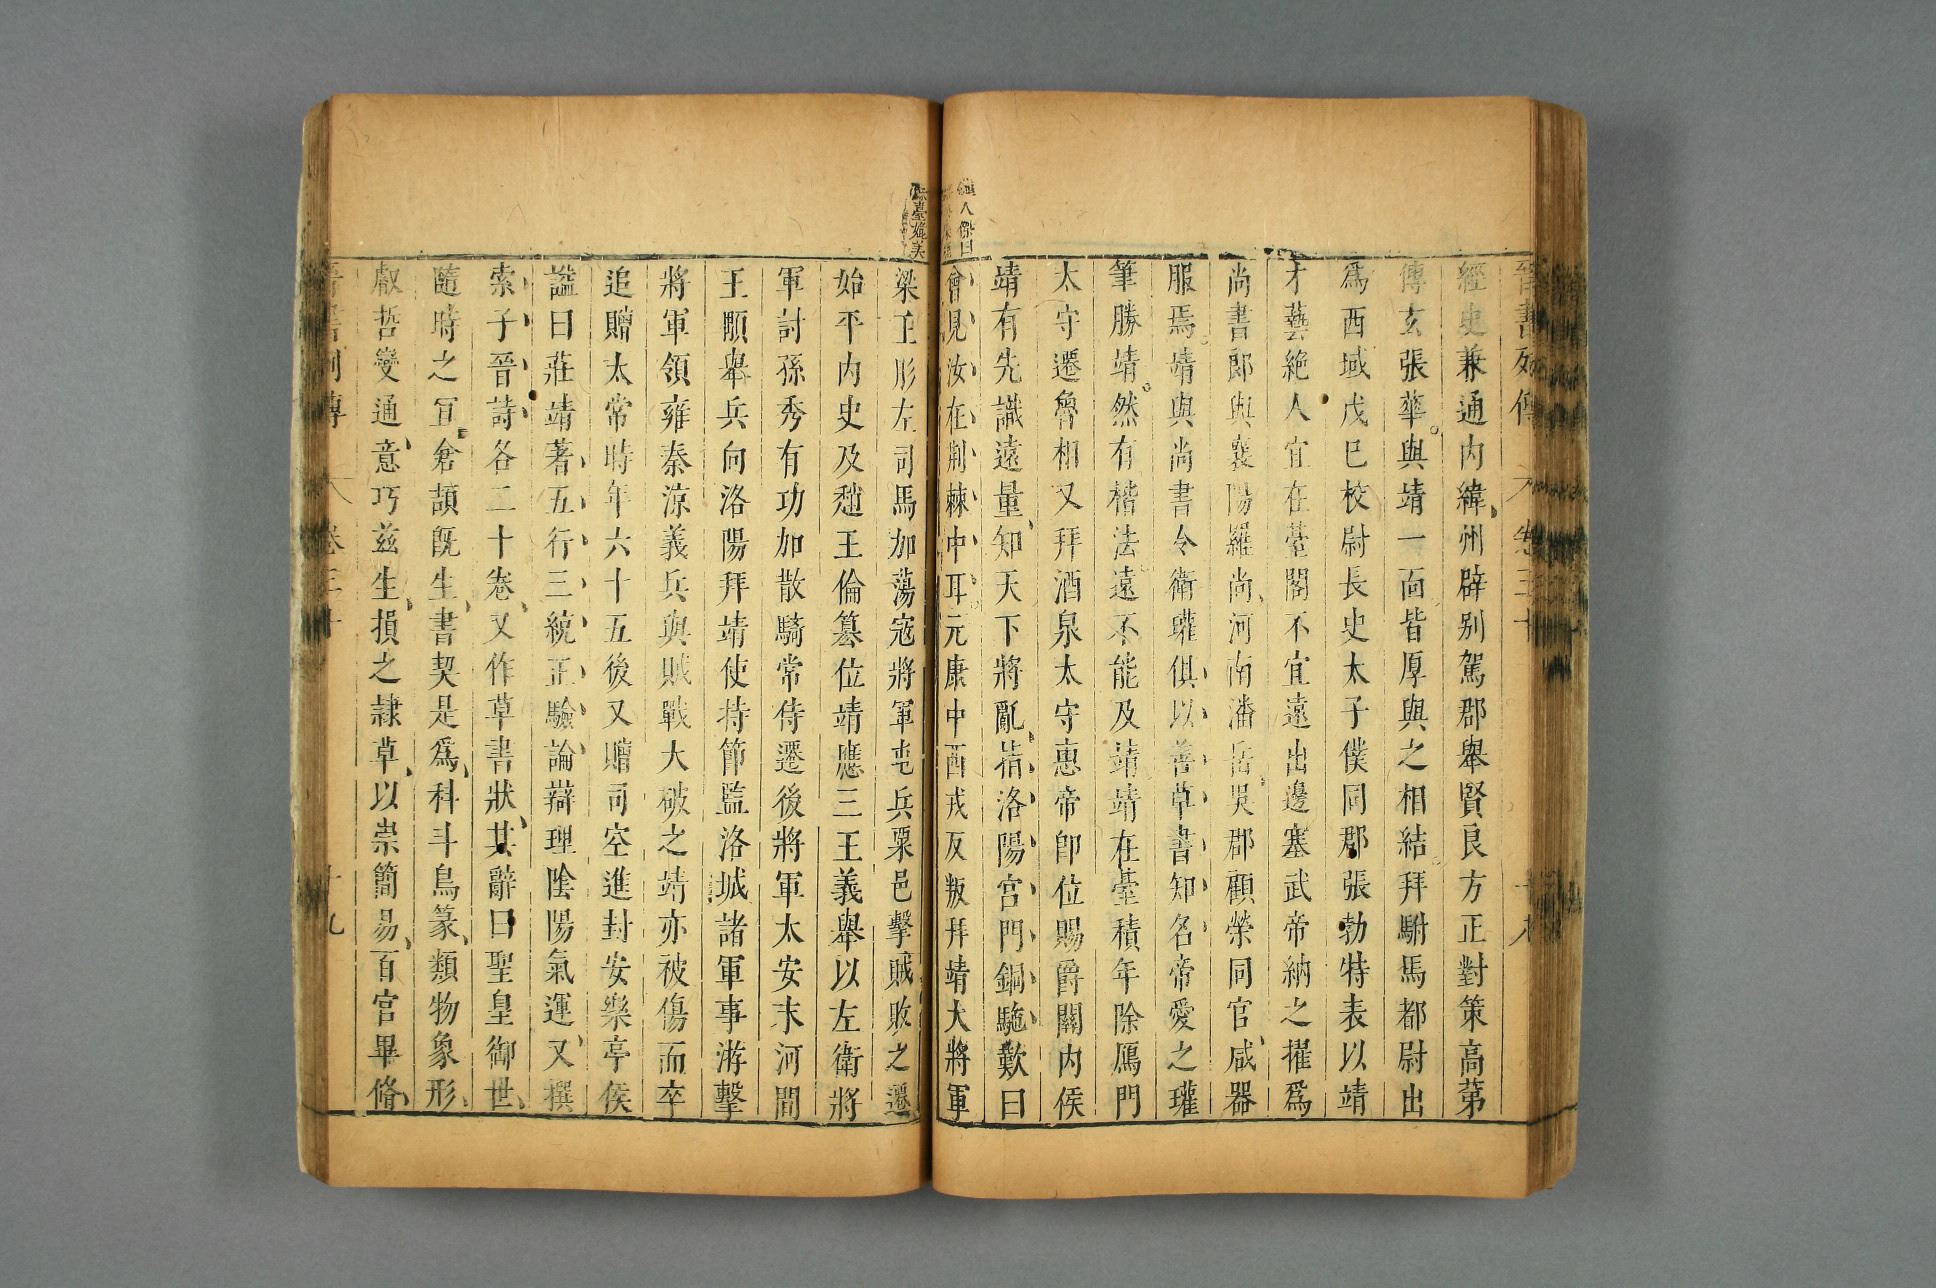 晉書列傳 卷三十 十八
經史兼通内緯州辟別駕郡舉賢良方正對策高第
傅玄張華與靖一面皆厚與之相結拜駙馬都尉出
爲西域戊巳校尉長史太子僕同郡張勃特表以靖
才藝絶人宜在臺閣不宜遠出邊塞武帝納之擢爲
尚書郎與襄陽羅尚河南潘岳吳郡顧榮同官咸器
服焉靖與尚書令衛瓘俱以善草書知名帝愛之瓘
筆勝靖然有楷法遠不能及靖靖在臺積年除鴈門
太守遷魯相又拜酒泉太守惠帝卽位賜爵關内侯
靖有先識遠量知天下將亂指洛陽宮門銅駞歎曰
會見汝在荆棘中耳元康中西戎反叛拜靖大將軍
梁王肜左司馬加蕩寇將軍屯兵粟邑擊賊敗之遷
始平内史及趙王倫簒位靖應三王義舉以左衛將
軍討孫秀有功加散騎常侍遷後將軍太安末河間
王顒舉兵向洛陽拜靖使持節監洛城諸軍事游擊
將軍領雍秦涼義兵與賊戰大破之靖亦被傷而卒
追贈太常時年六十五後又贈司空進封安樂亭侯
諡曰莊靖著五行三統正驗論辯理陰陽氣運又撰
索子晉詩各二十卷又作草書狀其辭曰聖皇御世
隨時之宜倉頡旣生書契是爲科斗鳥篆類物象形
叡哲變通意巧兹生損之隷草以崇簡易百官畢脩
晉書列傳 卷三十 十九